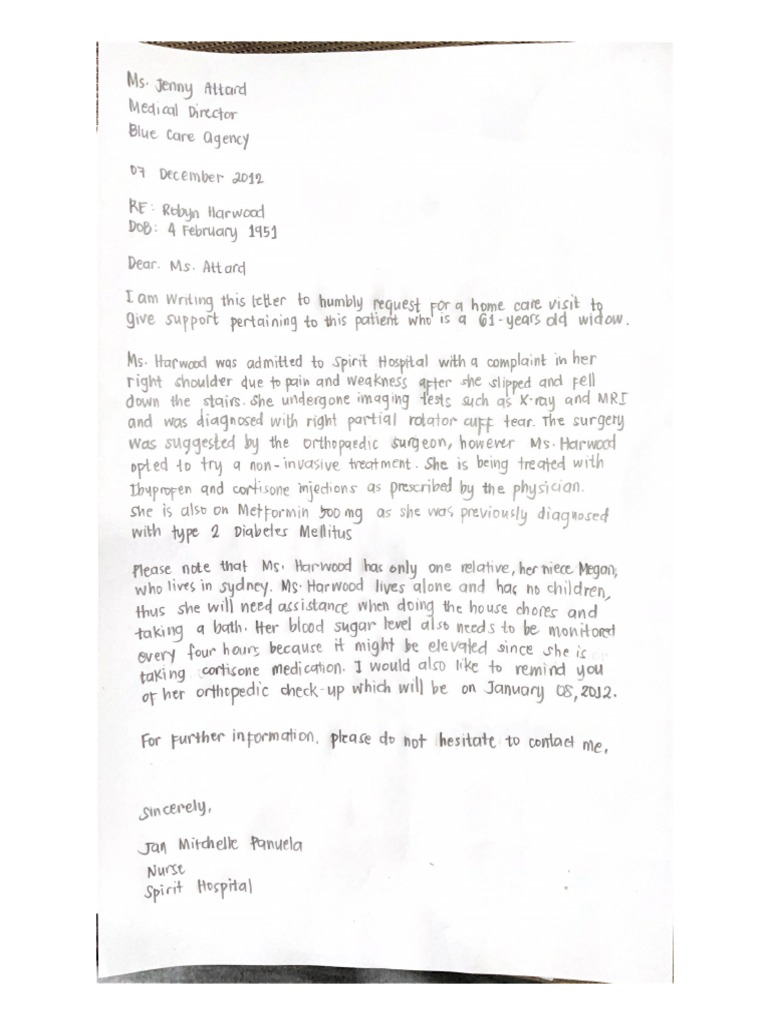 Ms. Jenny Attard
Medical Director
Blue Care Agency
07 December 2012
RE: Robyn Harwood
DOB: 4 February 1951
Dear. Ms. Attard
I am writing this letter to humbly request for a home care visit to
give support pertaining to this patient who is a 61-years old widow.
Ms. Harwood was admitted to Spirit Hospital with a complaint in her
right shoulder due to pain and weakness after she slipped and fell
down the stairs. She undergone imaging tests such as X-ray and MRI
and was diagnosed with right partial rotator cuff tear. The surgery
was suggested by the orthopaedic surgeon, however Ms. Harwood
opted to try a non-invasive treatment. She is being treated with
Ibuprofen and cortisone injections as prescribed by the physician.
She is also on Metformin 500 mg as she was previously diagnosed
with type 2 Diabetes Mellitus
Please note that Ms. Harwood has only one relative, her niece Megan,
who lives in sydney. Ms. Harwood lives alone and has no children,
thus she will need assistance when doing the house chores and
taking a bath. Her blood sugar level also needs to be monitored
every four hours because it might be elevated since she is
taking cortisone medication. I would also like to remind you
of her orthopedic check-up which will be on January 08, 2012.
For further information, please do not hesitate to contact me,
Sincerely,
Jan Mitchelle Panuela
Nurse
Spirit Hospital